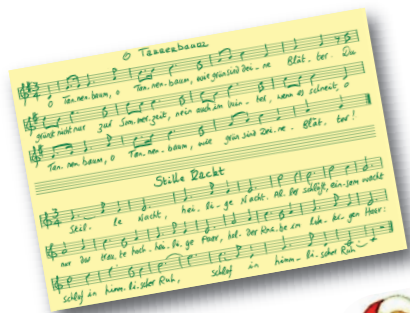 O Tannenbaum
O Tan-nen-baum, o Tan-nen-baum, wie grün sind dei-ne Blät-ter. Du
grünst nicht nur zur Som-mer-zeit, nein auch im Win-ter, wenn es schneit, o
Tan-nen-baum, o Tan-nen-baum, wie grün sind Dei-ne Blät-ter!
Stille Nacht
Stil-le Nacht, hei-li-ge Nacht. Al-les schläft, ein-sam wacht
nur das trau-te hoch-hei-li-ge Paar, hol-der Kna-be im lok-ki-gen Haar:
schlaf in himm-li-scher Ruh, schlaf in himm-li-scher Ruh